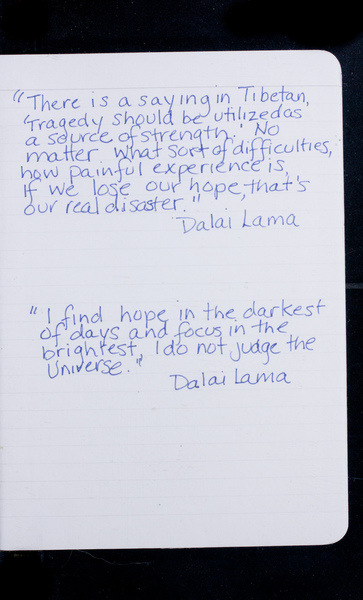 "There is a saying in Tibetan,
'Tragedy should be utilized as
a source of strength.' No
matter what sort of difficulties,
how painful experience is,
if we lose our hope, that's
our real disaster."
Dalai Lama
"I find hope in the darkest
of days and focus in the
brightest, I do not judge the
Universe."
Dalai Lama